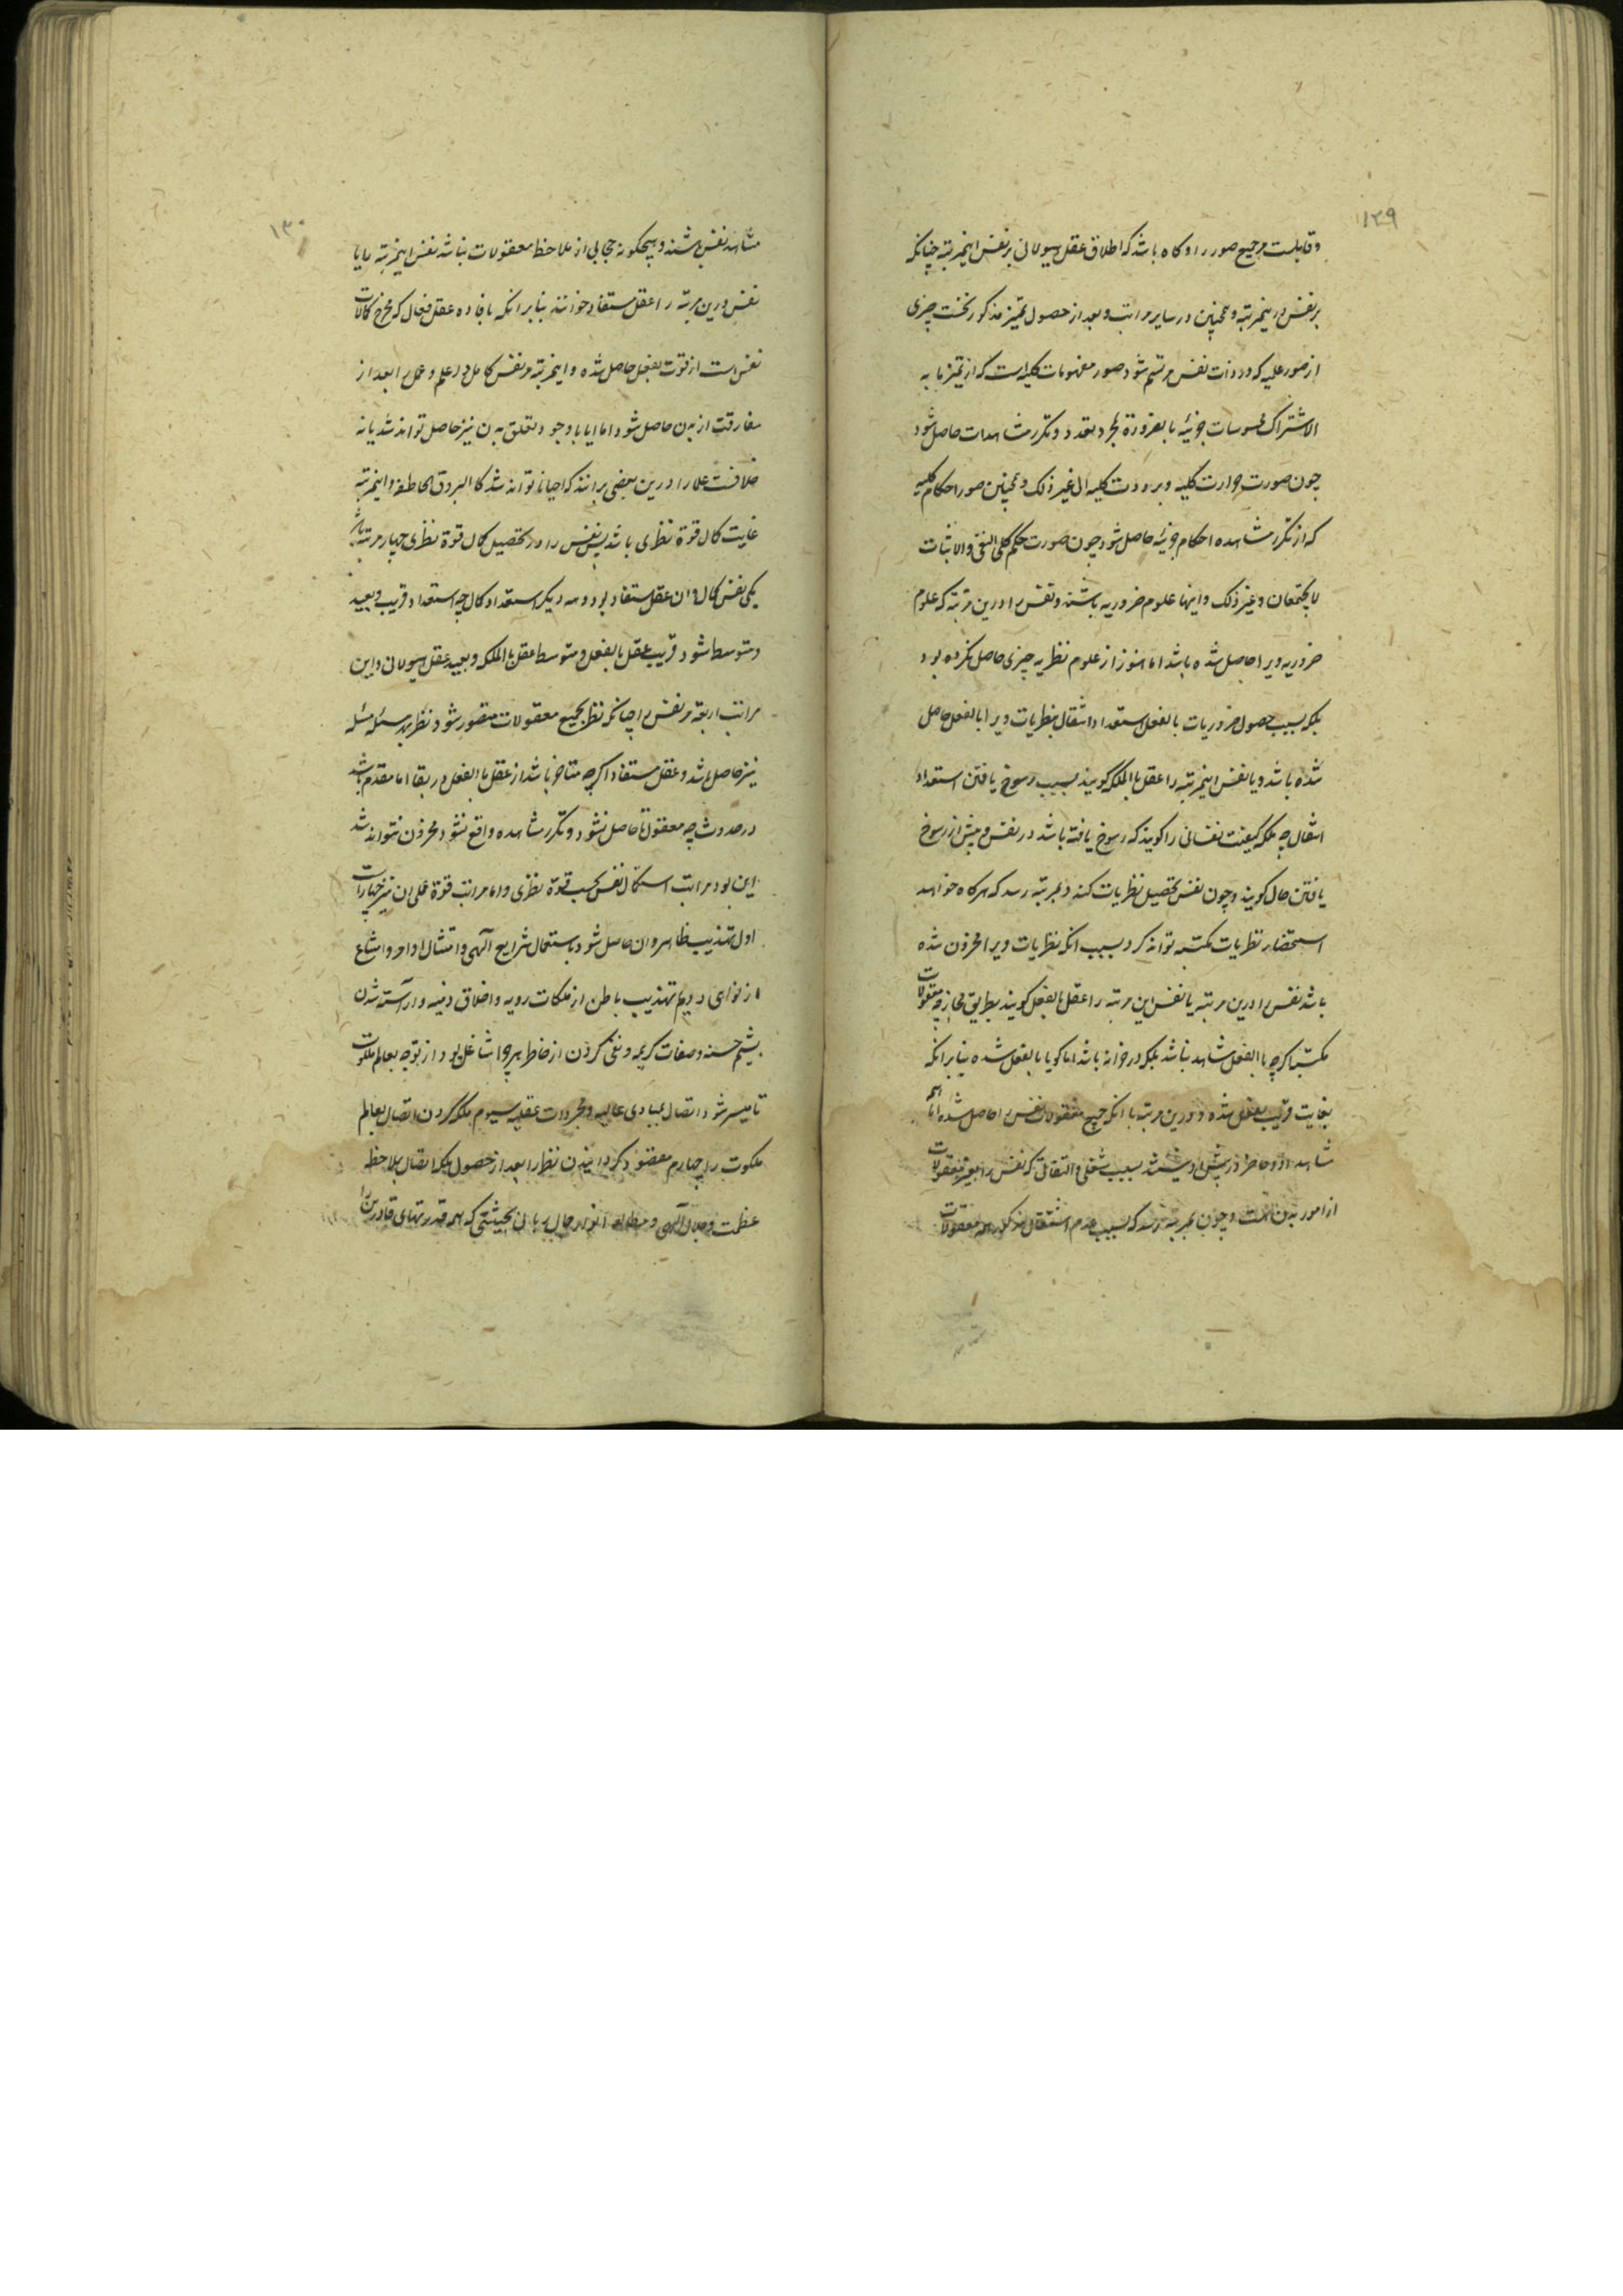 ۱۲۹
و قابلست مر جمیع صور را و کاه باشد که اطلاق عقل هیولانی بر نفس اینمرتبه چنانکه
بر نفس در ینمرتبه و همچنین در سایر مراتب و بعد از حصول تمییز مذکور نخست چیزی
از صور علمیه که در ذات نفس مرتسم شود صور مفهومات کلیه است که از تمییز ما به
الاشتراک محسوسات جزئیه بالضرورة بمجرد تعدد و تکرر مشاهدات حاصل شود
چون صورت حرارت کلیه و برودت کلیه الی غیر ذلک و همچنین صور احکام کلیه
که از تکرر مشاهده احکام جزئیه حاصل شود چون صورت حکم کلی النفی والاثبات
لا یجتمعان و غیر ذلک و اینها علوم ضروریه باشند و نفس را درین مرتبه که علوم
ضروریه ویرا حاصل شده باشد اما هنوز از علوم نظریه چیزی حاصل نکرده بود
بلکه بسبب حصول ضروریات بالفعل استعداد انتقال بنظریات ویرا بالفعل حاصل
شده باشد و یا نفس اینمرتبه را عقل بالملکه کویند بسبب رسوخ یافتن استعداد
انتقال چه ملکه کیفیت نفسانی را کویند که رسوخ یافته باشد در نفس و پیش از رسوخ
یافتن حال کویند و چون نفس تحصیل نظریات کند و بمرتبه رسد که هرکاه خواهد
استحضار نظریات مکتسبه تواند کرد بسبب انکه نظریات ویرا مخزون شده
باشد نفس را درین مرتبه یا نفس این مرتبه را عقل بالفعل کویند بطریق مجاز چه معقولات
مکتسبه اکرچه بالفعل مشاهد نباشد بلکه در خزانه باشد اما کویا بالفعل شده بنابر انکه
بغایت قریب بفعل شده و درین مرتبه با انکه جمیع معقولات نفس را حاصل شده اما همه
مشاهد او و حاضر در پیش او نیستند بسبب شغلی و التفاتی که نفس را بغیر معقولات
از امور بدن هست و چون بمرتبه رسد که بسبب عدم اشتغال مذکور همه معقولات
۱۳۰
مشاهد نفس باشند و هیچکونه حجابی از ملاحظه معقولات نباشد نفس اینمرتبه را یا
نفس درین مرتبه را عقل مستفاد خوانند بنابر انکه بافاده عقل فعال که مخرج کمالات
نفس است از قوت بفعل حاصل شده و اینمرتبه مر نفس کامل در علم و عمل را بعد از
مفارقت از بدن حاصل شود اما ایا با وجود تعلق بدن نیز حاصل تواند شد یا نه
خلافست علما را درین بعضی برانند که احیانا تواند شد کالبروق الخاطفه و اینمرتبه
غایت کمال قوة نظری باشد پس نفس را در تحصیل کمال قوة نظری چهار مرتبه باشد
یکی نفس کمال و ان عقل مستفاد بود و سه دیکر استعداد کمال چه استعداد قریب و بعید
و متوسط شود قریب عقل بالفعل و متوسط عقل بالملکه و بعید عقل هیولانی و این
مراتب اربعه مر نفس را چنانکه نظر بجمیع معقولات متصور شود نظر بهر مسئله مسئله
نیز حاصل باشد و عقل مستفاد اکرچه متاخر باشد از عقل بالفعل در بقا اما مقدم باشد
در حدوث چه معقول تا حاصل نشود و تکرر مشاهده واقع نشود مخزون نتواند شد
این بود مراتب استکمال نفس بحسب قوة نظری و اما مراتب قوة عملی ان نیز چهار است
اول تهذیب ظاهر و ان حاصل شود باستعمال شرایع الهی و امتثال اوامر و امتناع
از نواهی دویم تهذیب باطن از ملکات ردیه و اخلاق دنیه و اراسته شدن
بشیم حسنه و صفات کریمه و نفی کردن از خاطر هر چرا شاغل بود از توجه بعالم ملکوت
تا میسر شود اتصال بمبادی عالیه و مجردات عقلیه سیوم ملکه کردن اتصال بعالم
ملکوت را چهارم مقصود کردانیدن نظر را بعد از حصول ملکه اتصال بملاحظه
عظمت و جلال الهی و مطالعه انوار جمال ربانی بحیثیتی که همه قدرتهای قادرین را